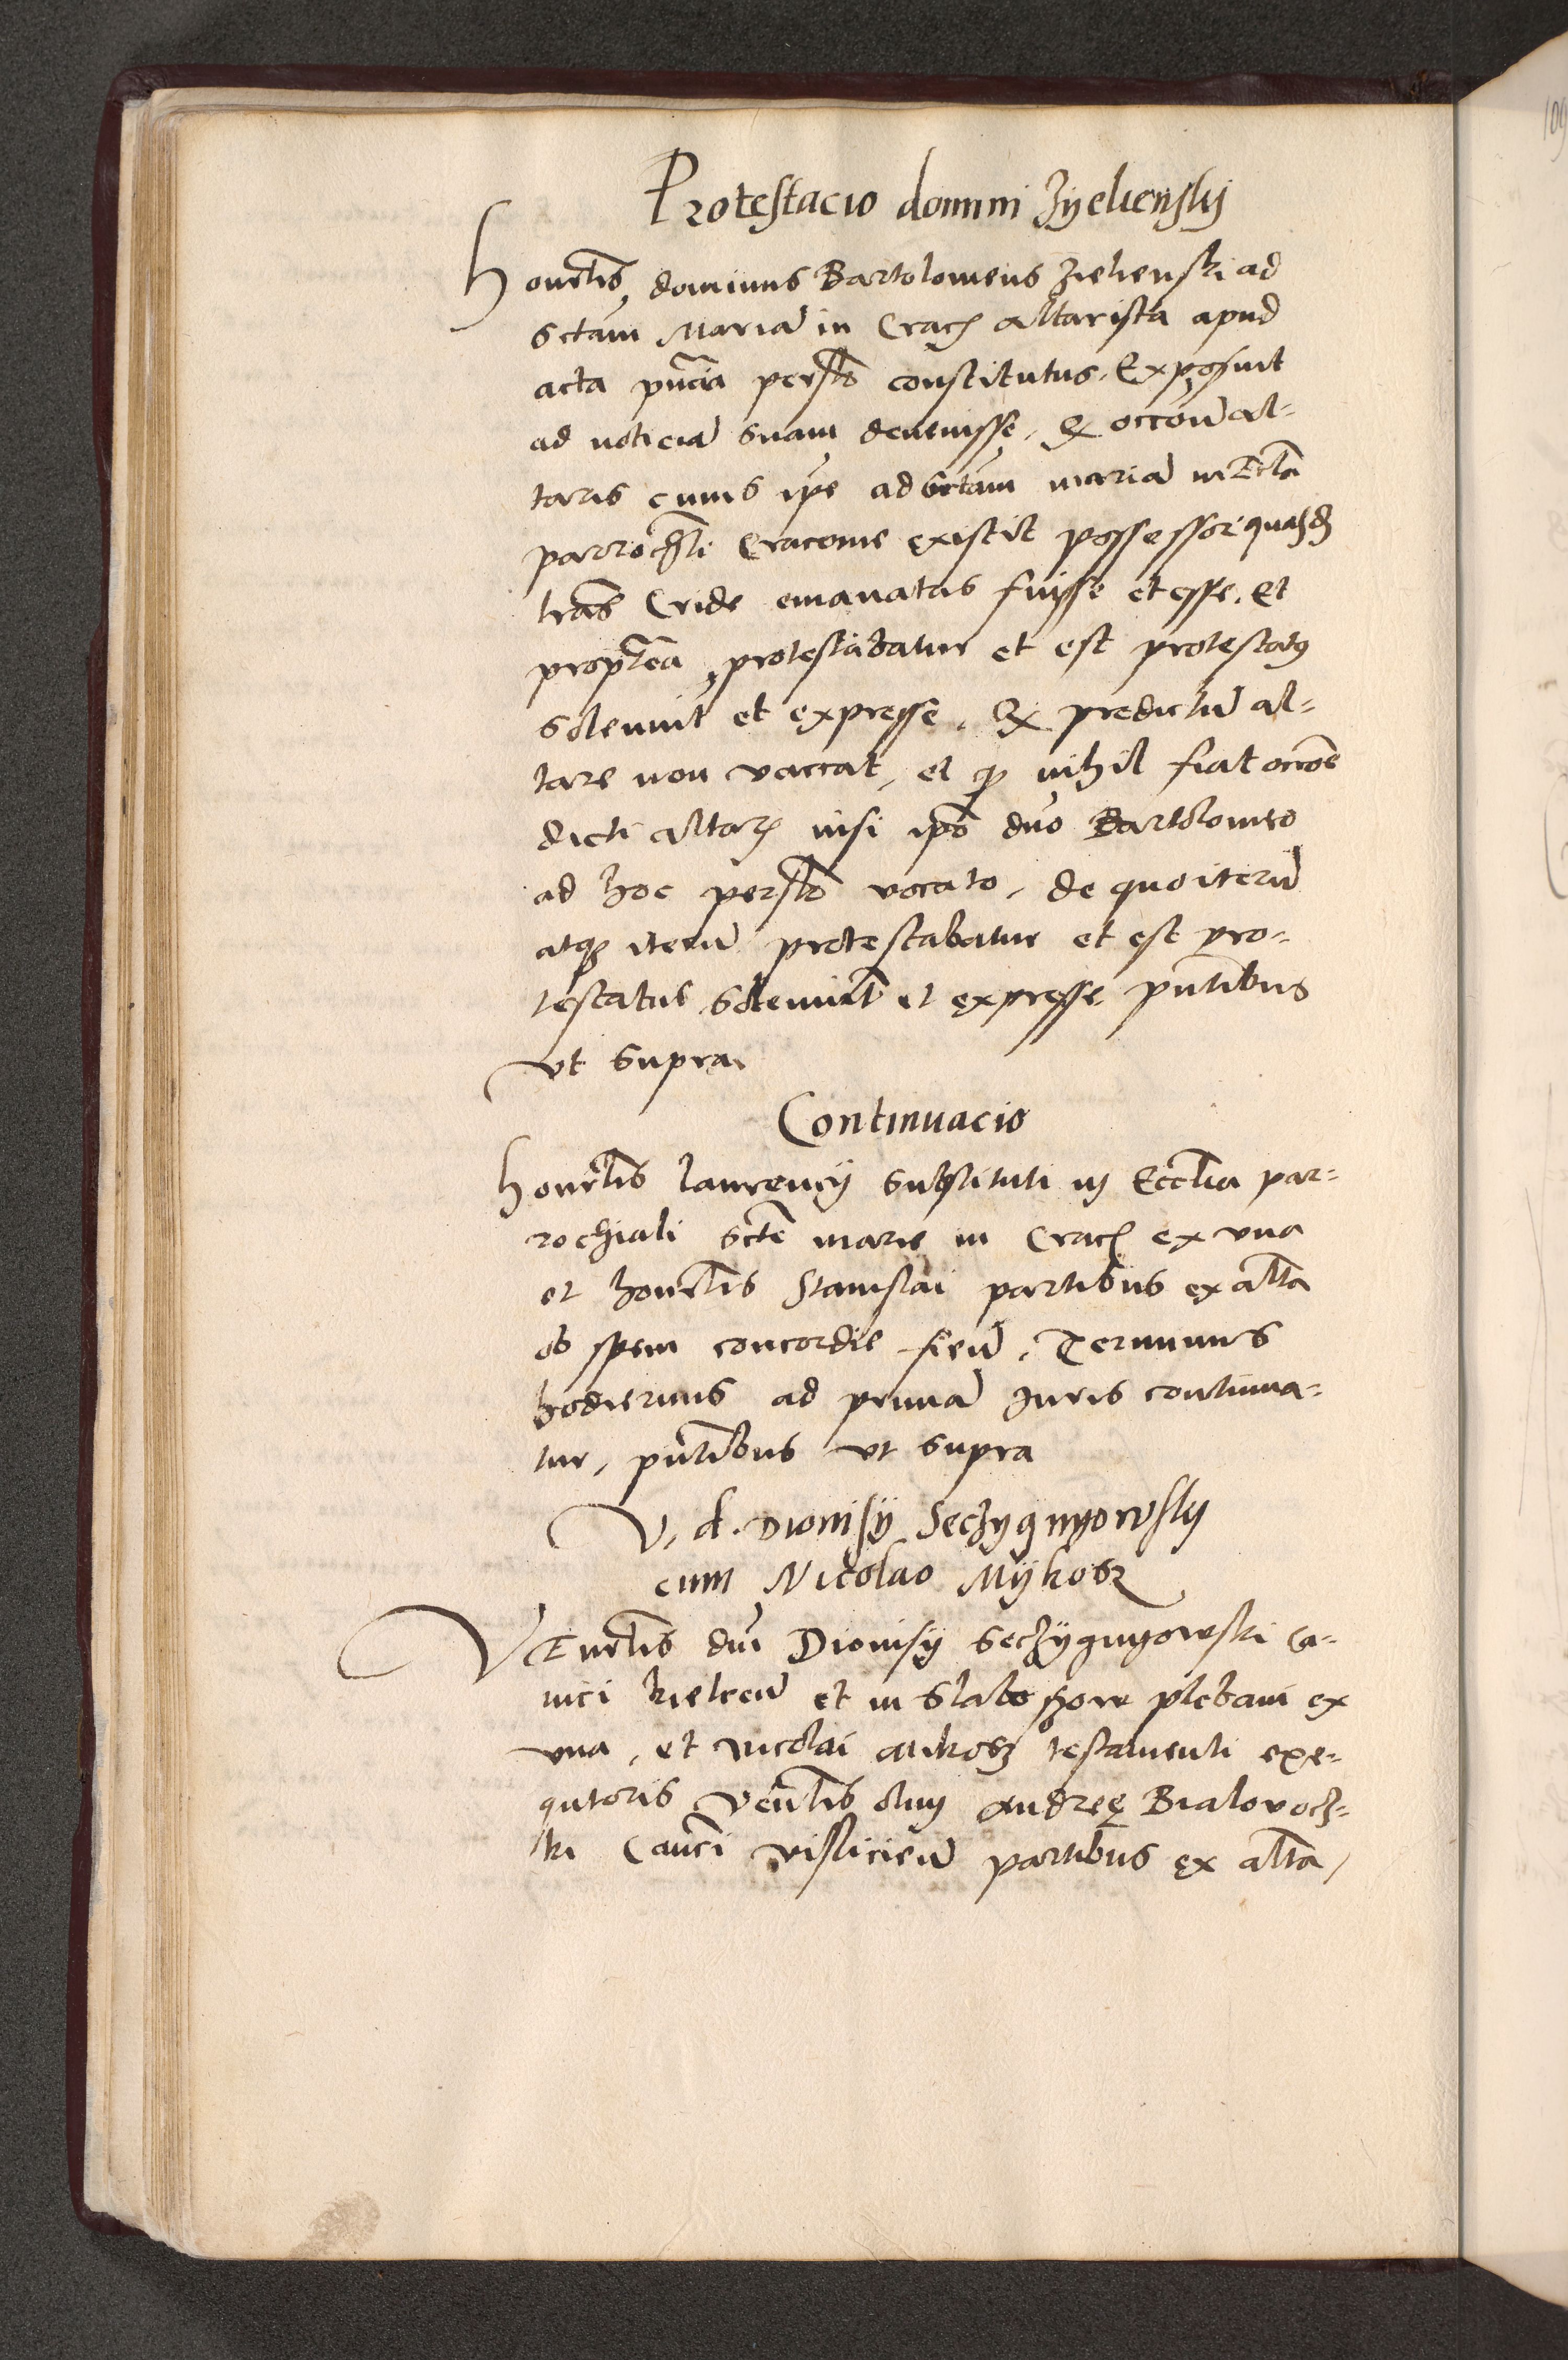 Protestacio domini Zyelienskÿ
Honrlis, dominus Bartolomeus Zielienski ad
Sctam Maria in Crac altarista apud
acta pncia persolr constitutus. Exposuit
ad noticia suam devenisse, Qz occoe al-
taris cuius ipe ad Sctam maria in Eccla
parrochli Cracovie existit possessor quasdz
lras Cride emanatas fuisse et esse. Et
proptea, protestabatur et est protestatus
solennit et expresse, Qz predictu al-
tare non vaccat, et qz nihil fiat occoe
dicti altar nisi ipo dno Bartolomeo
ad hoc persolr vocato, de quo iteru
atqz iteru protestabatur et est pro-
testatus solennit et expresse pntibus
vt supra.
Continuacio
Honrlis Laurencÿ substituti in Ecclia par-
rochiali Scte marie in Crac ex vna
et honrlis Stanislai partibus ex altra
ob spem concordie fien, Terminus
hodiernus ad prima Juris continua-
tur, pntibus vt supra
V. d. Dionisÿ Seczygnyowskÿ
cum Nicolao Mÿkosz
Venrlis dni Dionisÿ Seczÿgnyowski Ca-
nici kielcen et in Slaboszow plebani ex
vna, et Nicolai Mikosz testamenti exe-
qutoris venrlis olim Andree Bialovocz-
ki Canci vislicien partibus ex altra,
109